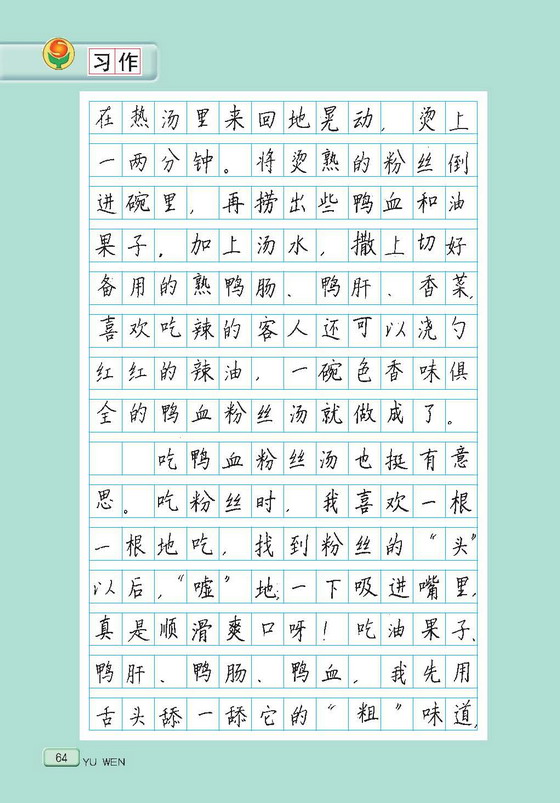 习作
在热汤里来回地晃动，烫上
一两分钟。将烫熟的粉丝倒
进碗里，再捞出些鸭血和油
果子。加上汤水，撒上切好
备用的熟鸭肠、鸭肝、香菜，
喜欢吃辣的客人还可以浇勺
红红的辣油，一碗色香味俱
全的鸭血粉丝汤就做成了。
吃鸭血粉丝汤也挺有意
思。吃粉丝时，我喜欢一根
一根地吃，找到粉丝的“头”
以后，“嘘”地一下吸进嘴里，
真是顺滑爽口呀！吃油果子、
鸭肝、鸭肠、鸭血，我先用
舌头舔一舔它的“粗”味道，
64 YU WEN